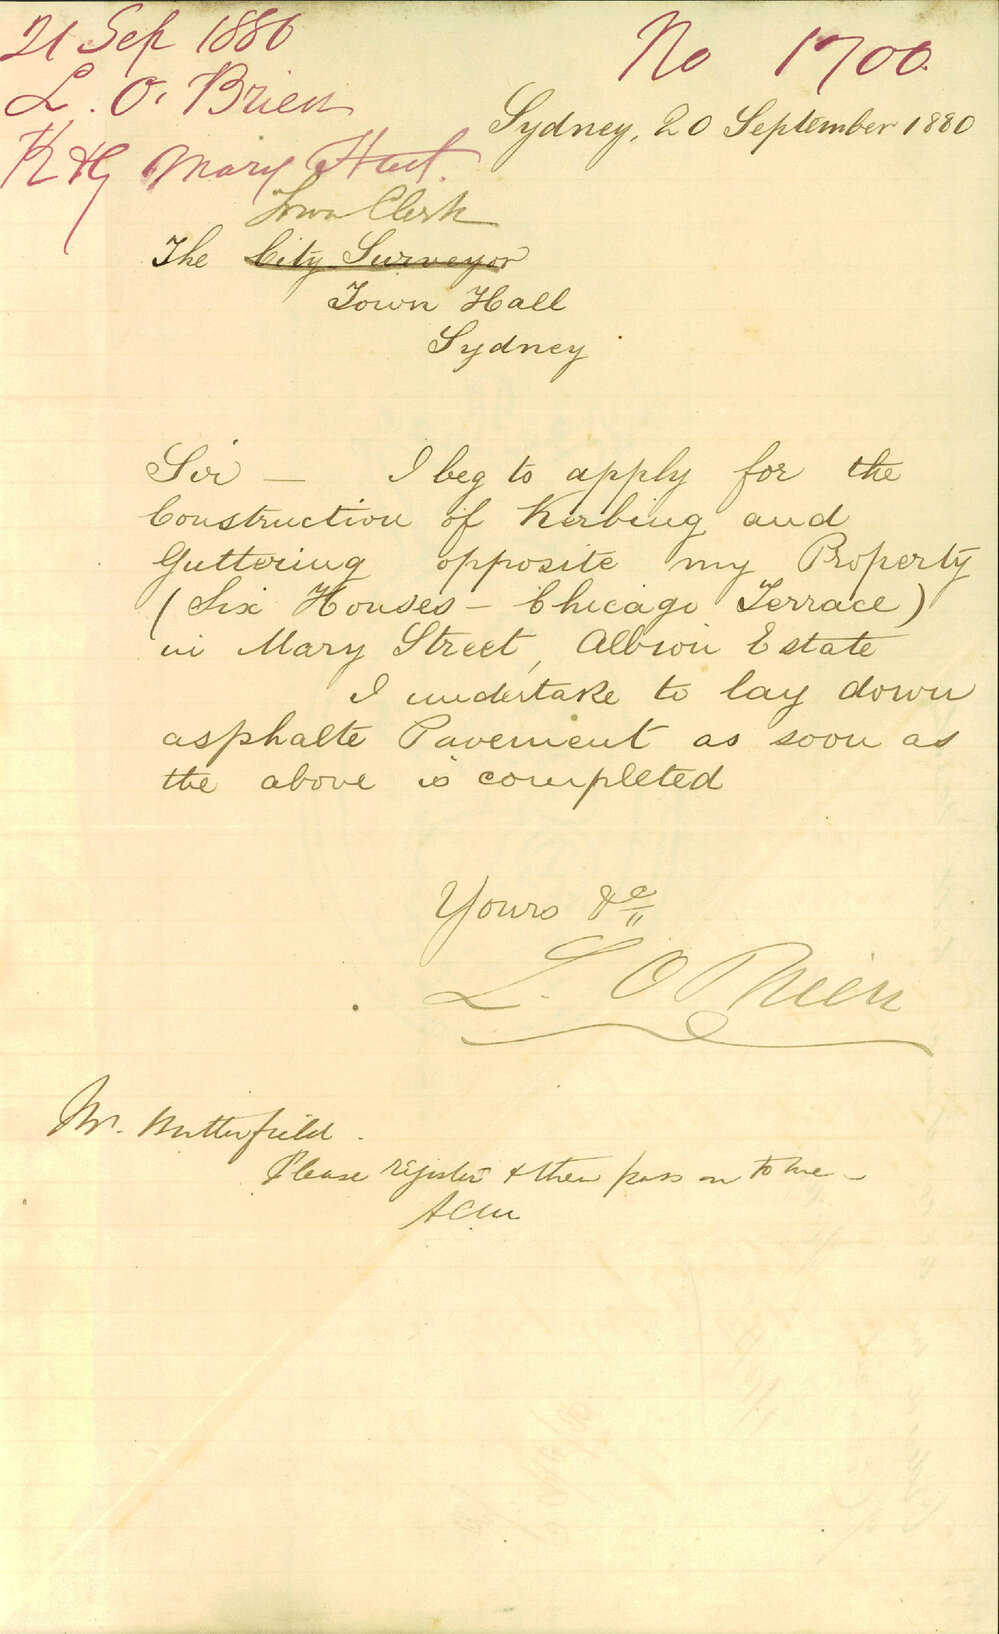 21 Sep 1880
No 1700
L. O. Brien
Sydney, 20 September 1880
K & G Mary Street.
Town Clerk
The City Surveyor
Town Hall
Sydney
Sir — I beg to apply for the
Construction of Kerbing and
Guttering opposite my Property
(Six Houses – Chicago Terrace)
in Mary Street, Albion Estate
I undertake to lay down
asphalte Pavement as soon as
the above is completed
Yours &c
L. O Brien
Mr. Butterfield.
Please register & then pass on to me –